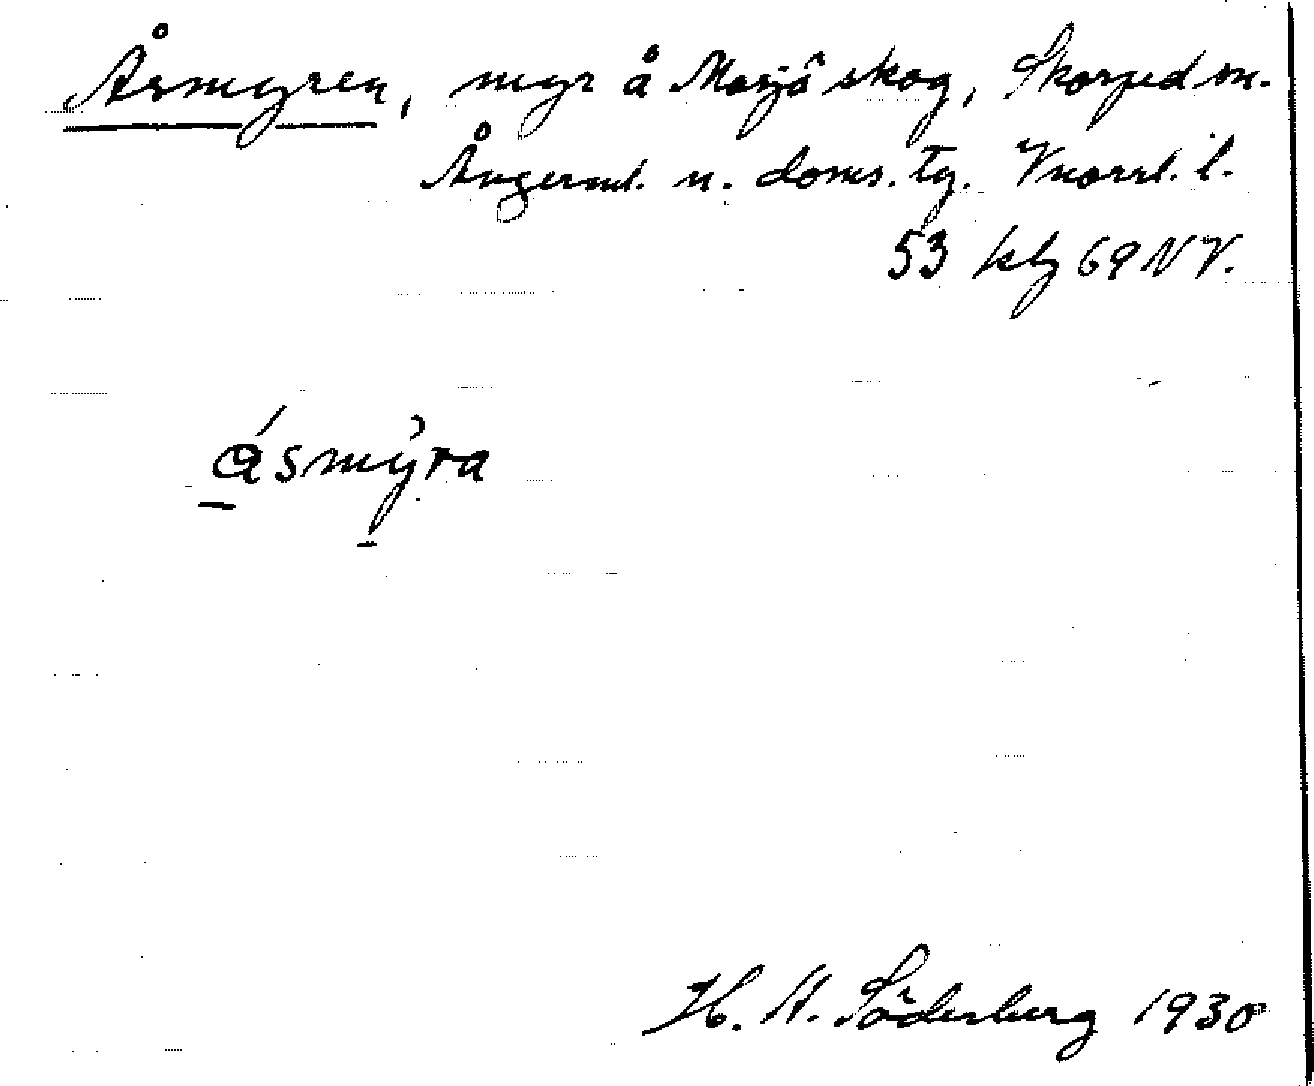 Åsmyren, myr å Mosjö skog, Skorped sn.
Ångerml. n. doms. tg. Vnorrl. l.
53 kbg 69 NV.
åsmyra
H. A. Söderberg 1930